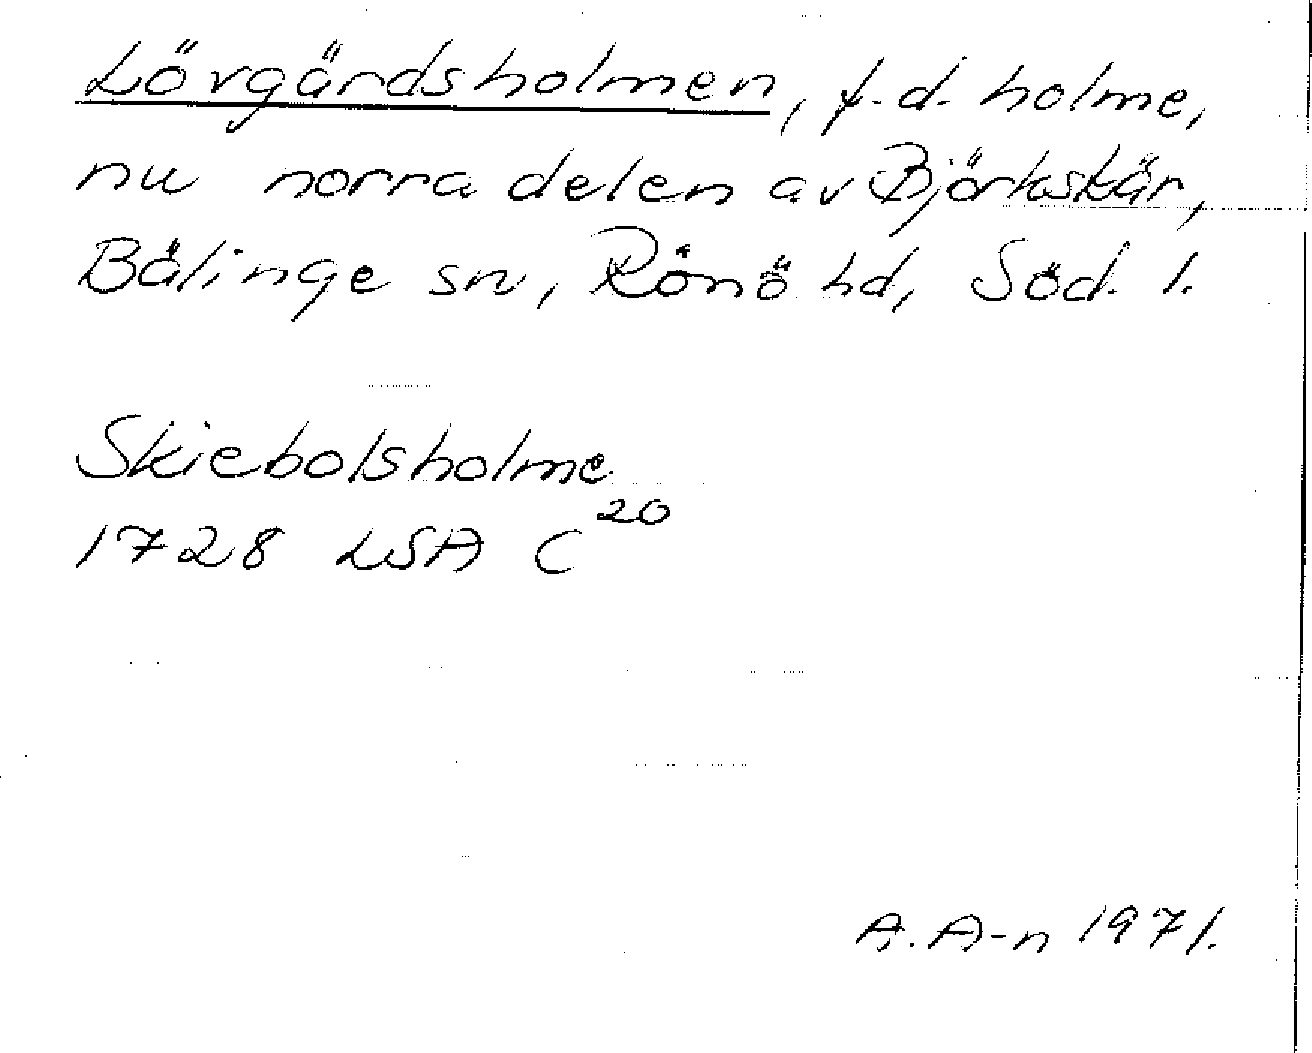 Lövgärdsholmen, f.d. holme,
nu norra delen av Björkskär,
Bälinge sn, Rönö hd, Söd. l.
Skiebolsholme
1728 LSA C 20
A. A-n 1971.